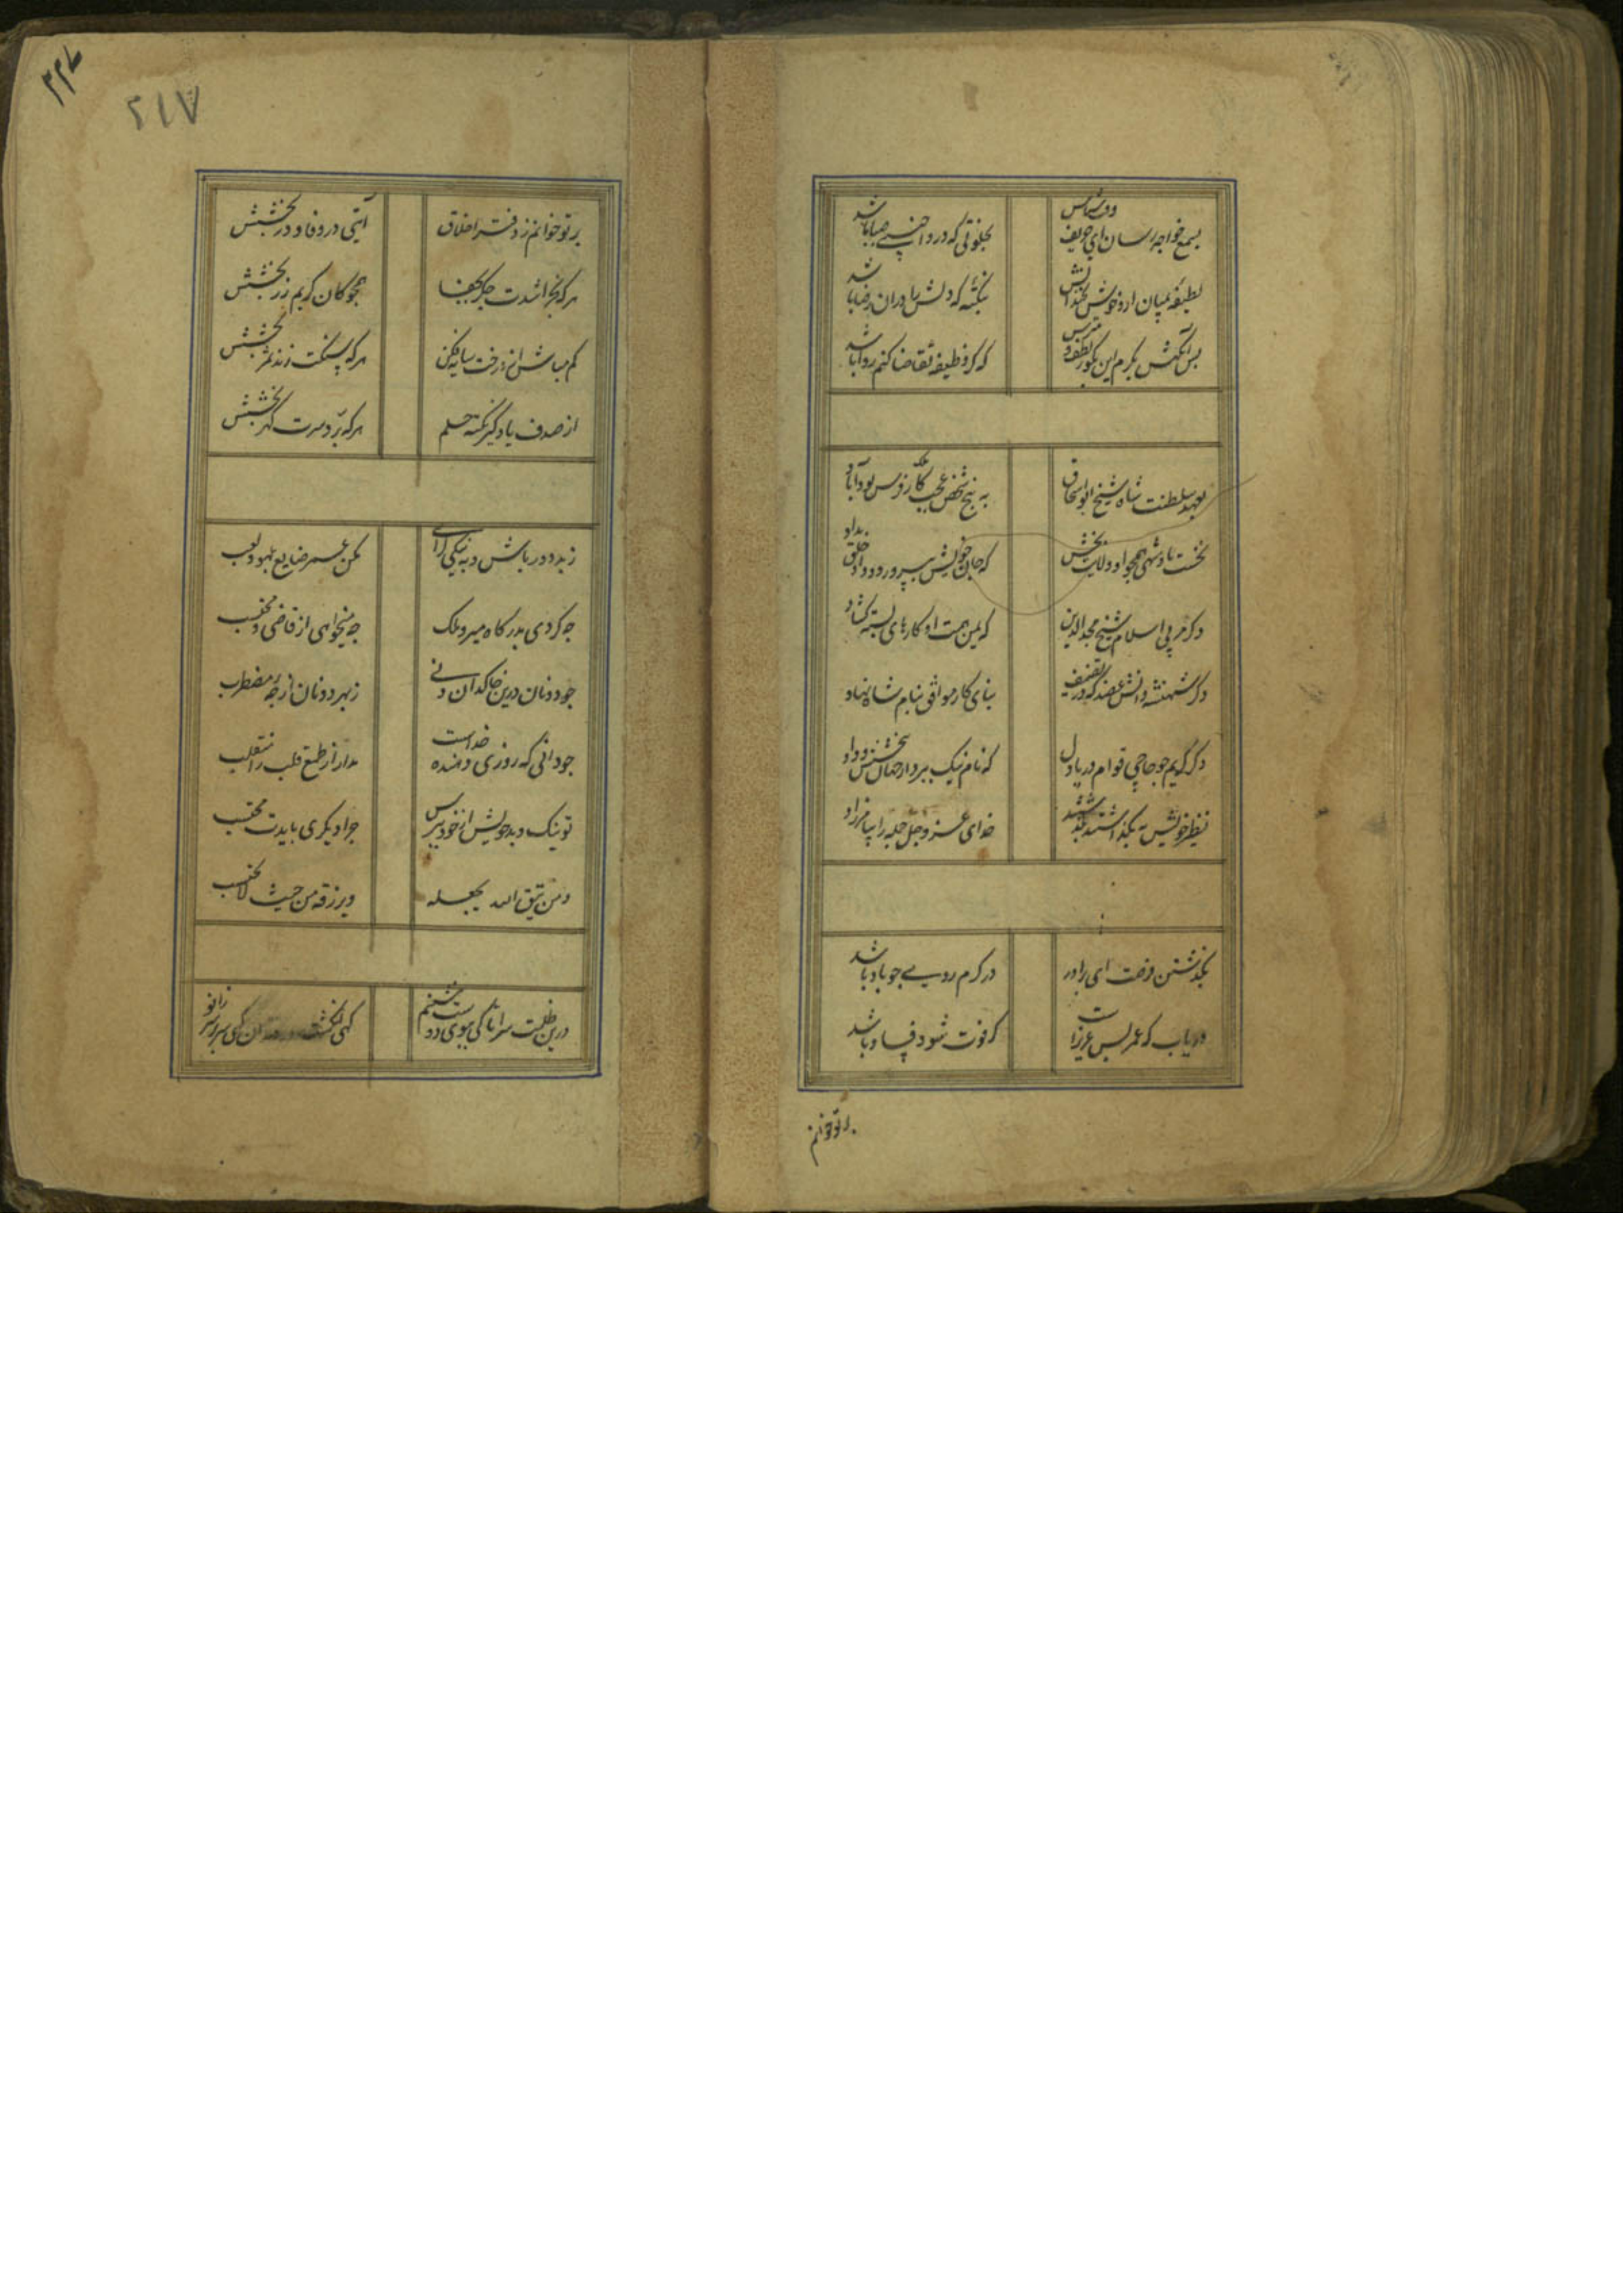 بسمع خواجه رسان ای حریف وقت شناس بخلوتی که درو اجنبی صبا باشد
لطیفهٔ بمیان ار و خوش بخندانش بنکتهٔ که دلش را در ان رضا باشد
پس آنکهش بکرم این بکو بلطف بپرس که کر وظیفه تقاضا کنم روا باشد
بعهد سلطنت شاه شیخ ابو اسحاق به پنج شخص عجب ملک فارس بود آباد
نخست پادشهی همجو او ولایت بخش که جان خویش بپرورد و داد خلق بداد
دکر مربی اسلام شیخ مجد الدین که یمن همت او کارهای بسته کشاد
دکر شهنشه دانش عضد که در تصنیف بنای کار مواقف بنام شاه نهاد
دکر کریم جو حاجی قوام دریا دل که نام نیک ببرد از جهان ببخشش و داد
نظیر خویش به بکذاشتند و بکذشتند خدای عز و جل جمله را بیامرزاد
بکذشتن فرصت ای برادر در کرم روی جو باد باشد
دریاب که عمر بس عزیز است کر فوت شود فساد باشد
بر تو خوانم
بر تو خوانم ز دفتر اخلاق آیتی در وفا و در بخشش
هر که بخراشدت جکر بجفا همجو کان کریم زر بخشش
کم مباش از درخت سایه فکن هر که سنکت زند ثمر بخشش
از صدف یاد کیر نکته حلم هر که برد سرت کهر بخشش
ز بد دور باش و به نیکی کرای مکن عمر ضایع بلهو و لعب
جه کردی بدرکاه میر و ملک جه میخواهی از قاضی و محتسب
جو دونان درین خاکدان دنی ز بهر دو نان از جهٔ مضطرب
جو دانی که روزی دهنده خداست مدار از طمع قلب را منقلب
تو نیک و بد خویش از خود بپرس جرا دیکری بایدت محتسب
و من یتق الله یجعل له و یرزقه من حیث لا یحتسب
درین ظلمت سرا تا کی ببوی دوست بنشینم کهی انکشت در دندان کهی سر بر سر زانو
۲۱۷